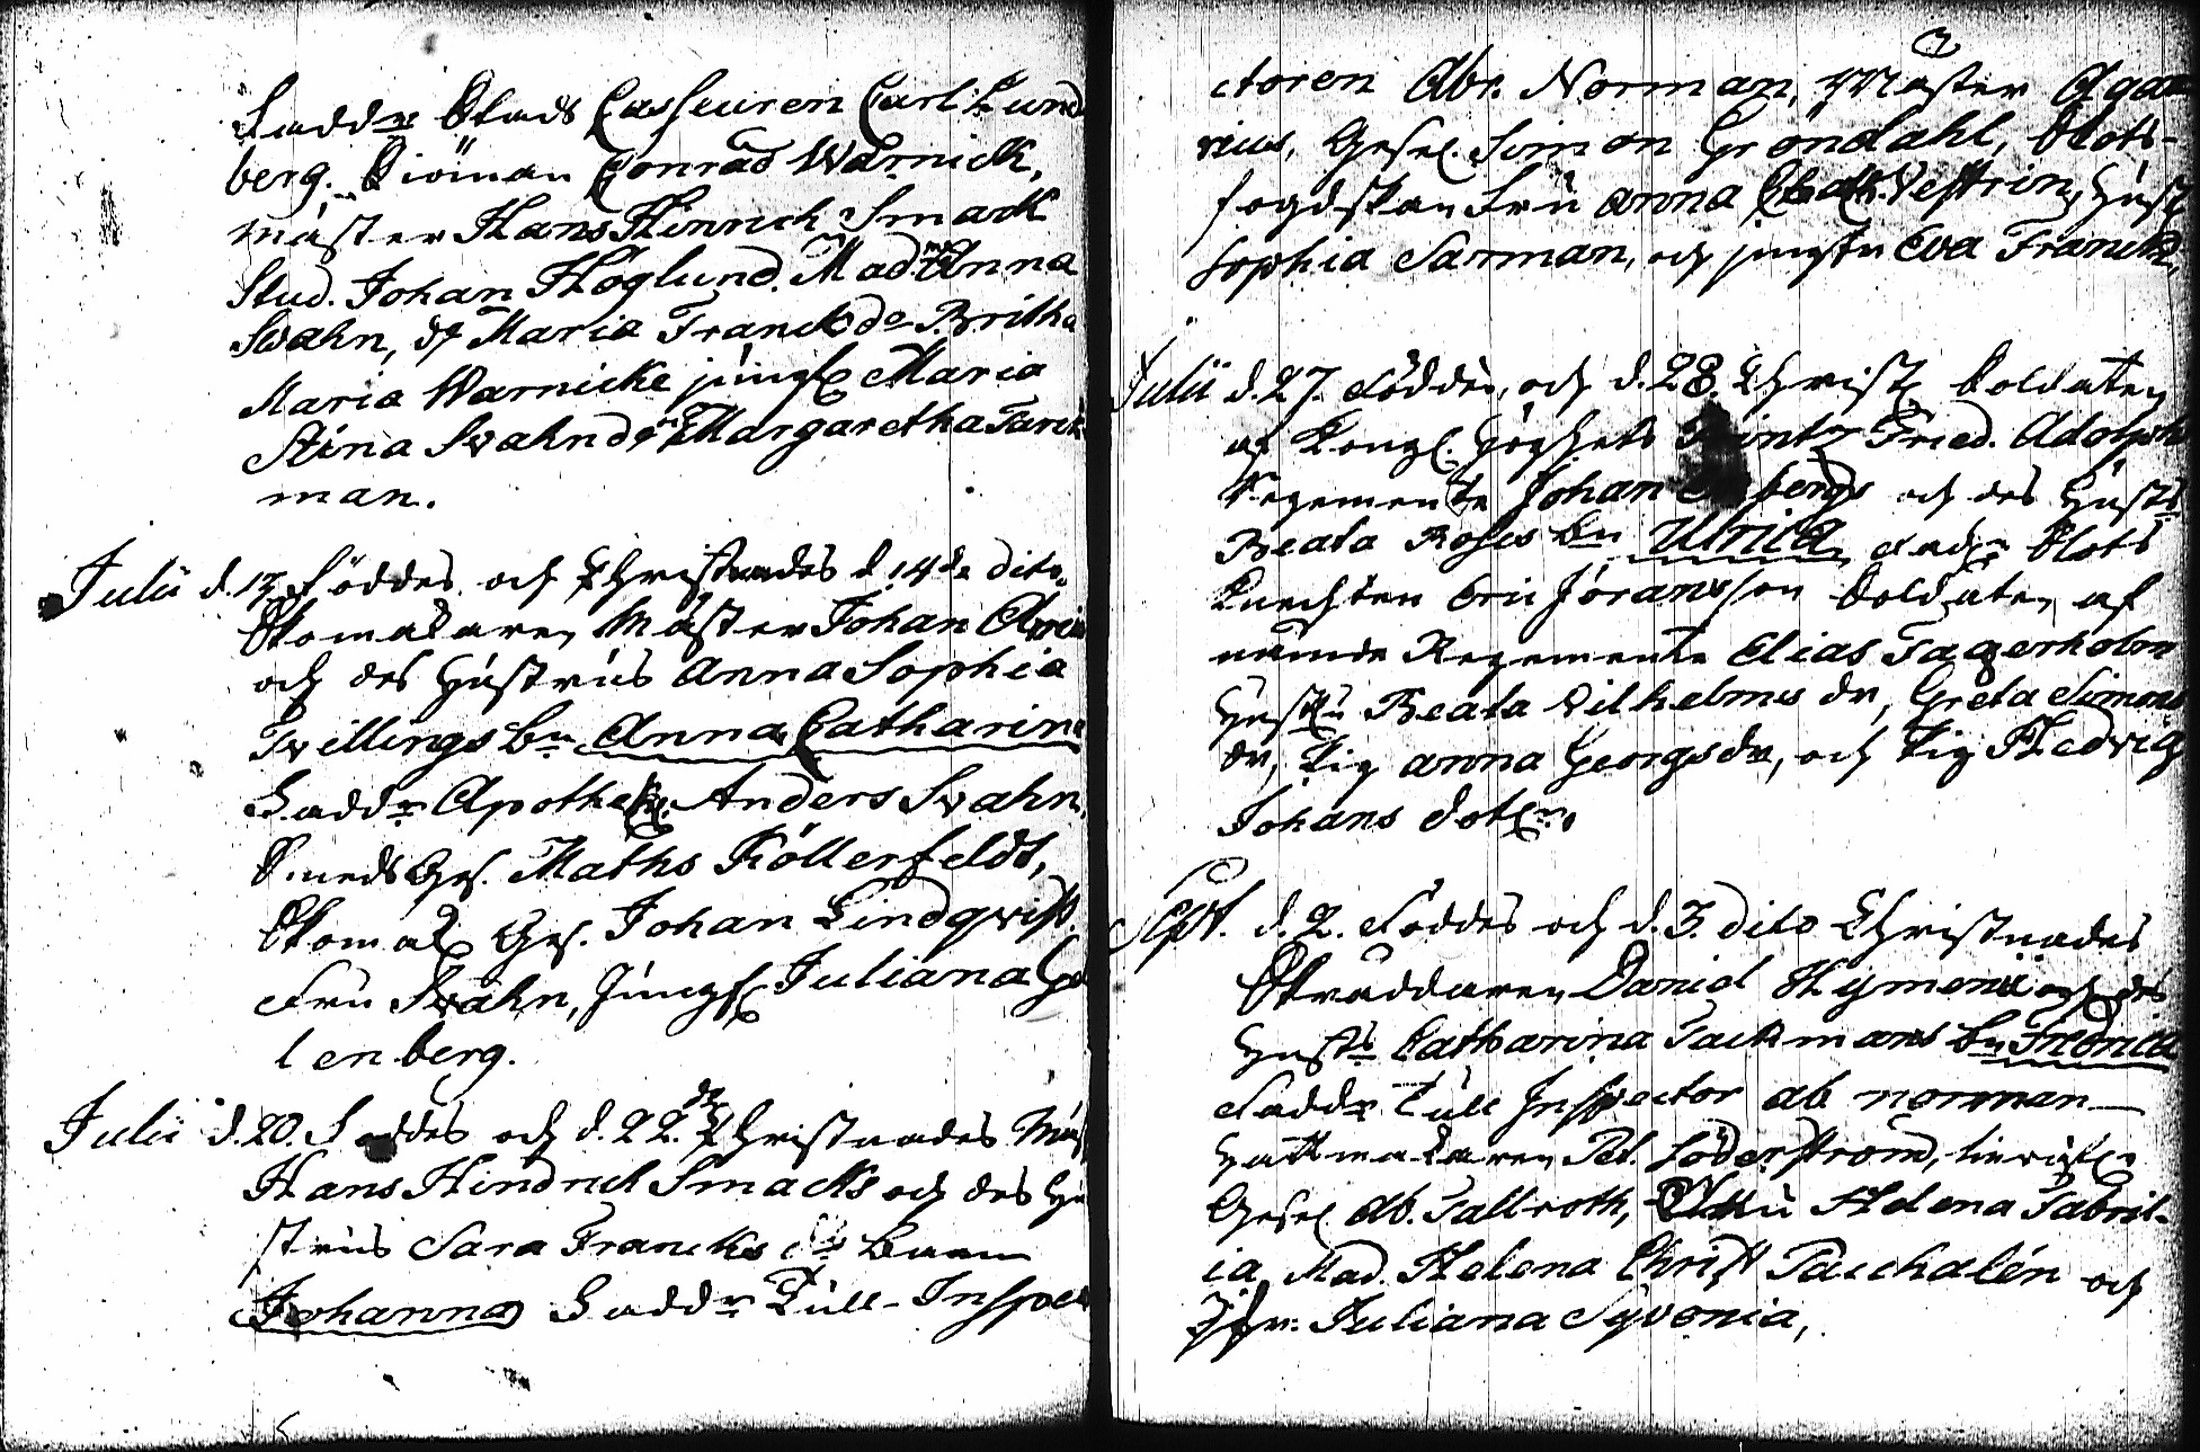 Faddr Stads Casseuren Carl Lund
berg. Siöman Conrad Warnick,
mäster Hans Hinrich Smack
Stud. Johan Höglund. Madme Anna
Swahn, do Maria Franck do Britha
Maria Warnicke jungf. Maria
Stina Swahn do Margaretha
man.
Julii d. 13 Föddes och Christnades d. 14de dito
Skomakaren Mäster Johan
och des Hustrus Anna Sophia
Twillings bn Anna Catharina
Faddr Apothek. Anders Swahn.
Smeds Ges. Maths Köllerfeldt,
Skomak Ges. Johan Lindqvist.
Fru Swahn, Jungf. Juliana
lenberg.
Julii d. 20. Föddes och d. 22. Christnades Mäst
Hans Hindrich Smacks och des Hu
strus Sara Francks barn
Johanna Faddr Tull-Inspe
ctoren Abr. Norman, Mäster
rius, Gesel. Simon Gröndahl, Slots-
fogdskan Fru Anna Vestrin, Hust
Sophia Sarman, och jungfr Eva Franck,
Julii d. 27. Föddes, och d. 28. Christ. Soldaten
af Kongl. Höghets Printz Fried. Adolphs
Regemente Johan bergs och des Hustr
Beata Roses bn Ulrica, Fadr Slots
Knechten Eric Jöransson Soldaten af
nämde Regemente Elias Fagerholm
Hustr Beata Vilhelms dr, Greta Simons
dr, Pig Anna Georgsdr, och Pig Hedvig
Johans doter.
Sept. d. 2. Föddes och d. 3. dito Christnades
Skräddaren Daniel Hymenii och des
Hustr Catharina Packmans bn Fredrica
Faddr Tull Inspector ab norman
Hattmakaren Pet. Söderström,
Gesel Ab. Tallroth, Helena Fabrit-
ia, Mad. Helena Christ Paschalén och
Jfr. Juliana Syvonia,